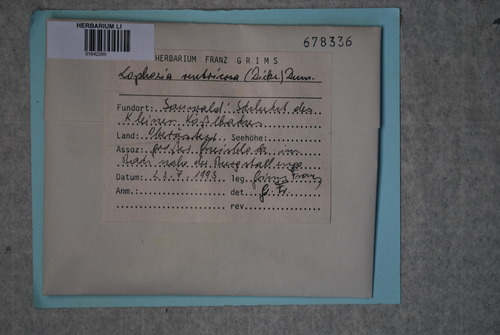 HERBARIUM LI
678336
HERBARIUM FRANZ GRIMS
Lophozia ventricosa (Dicks.) Dum.
Fundort: Sauwald: Schlucht des
Kleinen Kößlbaches
Land: Oberösterr. Seehöhe:
Assoz: großer Gneisblock im
Bach nahe der
Datum: 7. 1993 leg. Grims Franz
Anm. det Gr. Fr.
rev.